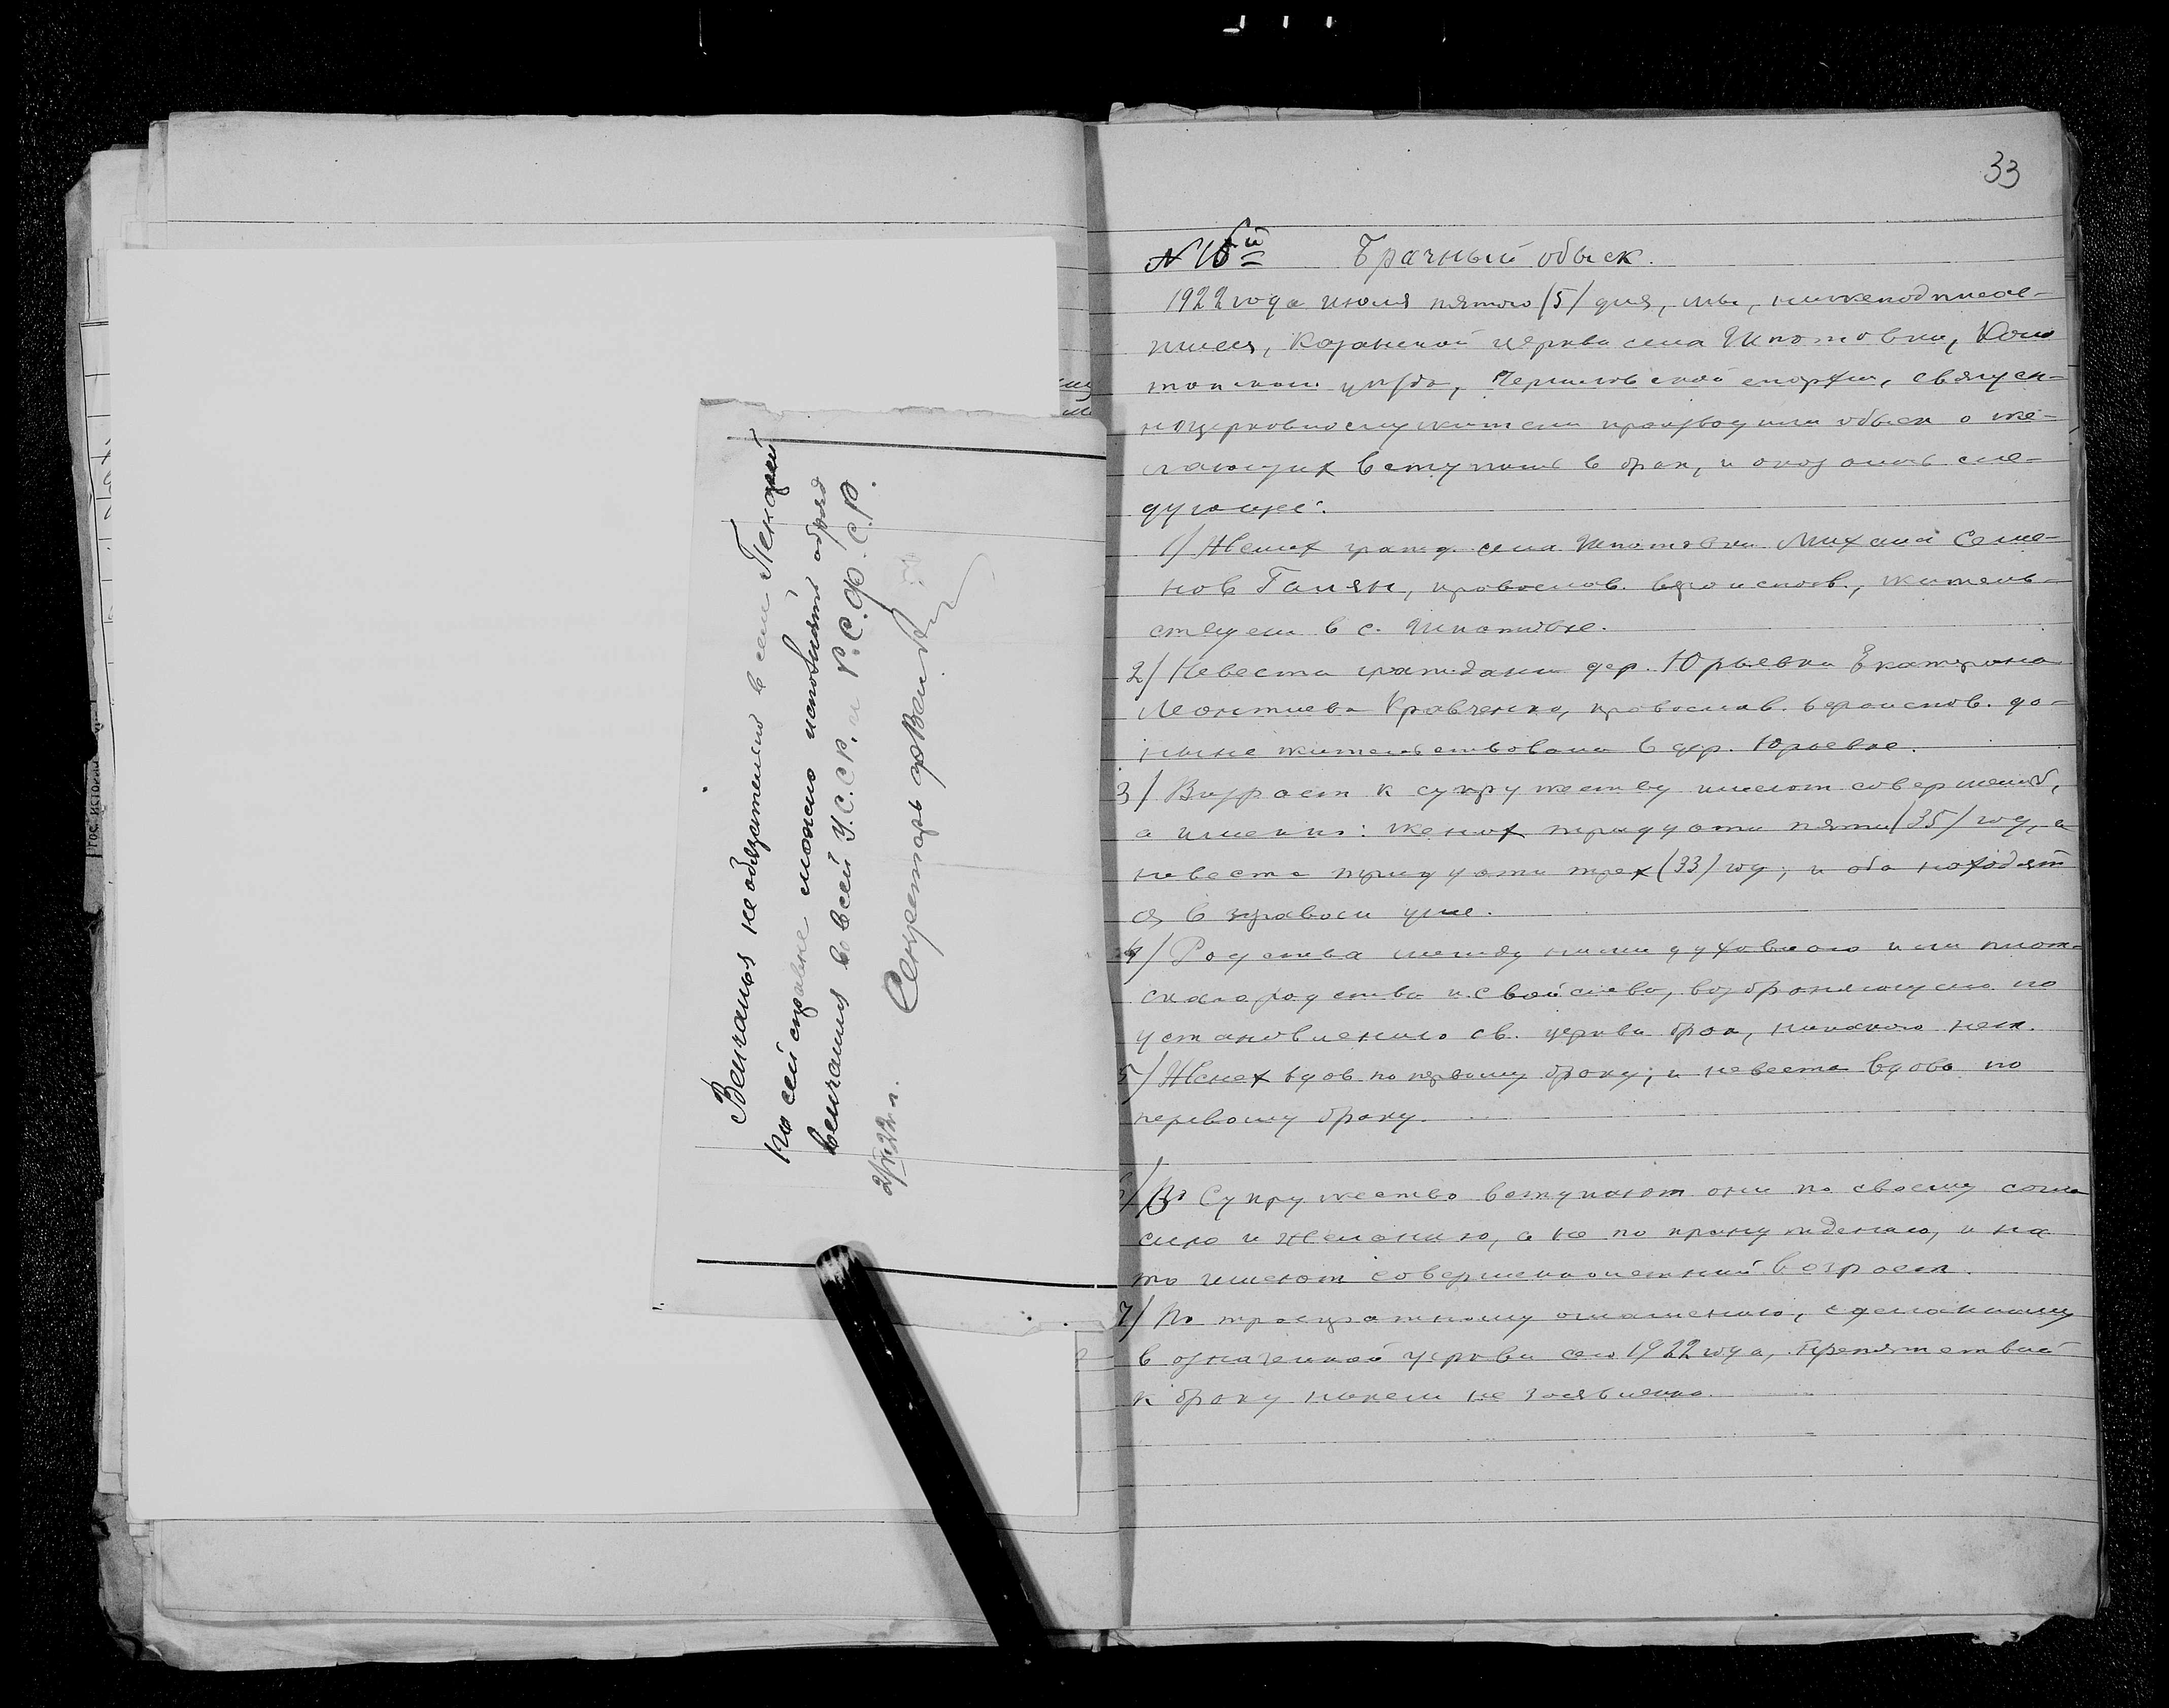 33
N 16й Брачный обыск.
1922 года июля пятого /5/ дня, мы, нижеподписав-
шиеся, Казанской церкви села Шпотовки, Коно
топского уезда, Черниговской епархии, священ-
ноцерковнослужители производили обыск о же-
лающих вступить в брак, и оказалось сле-
дующее:
1/ Жених гражд. села Шпотовки Михаил Семе-
нов Галян, православ. вероисповѣ., житель-
ствуем в с. Шпотовке.
2/ Невеста гражданка дер. Юрьевки Екатерина
Леонтиева Кравченко, православ. вероисповѣ. до-
ныне жительствовала в дер. Юрьевке.
3/ Возраст к супружеству имеют совершенный,
а именно: жених тридцати пяти /35/ год, а
невеста тридцати трех (33/ год; и оба находят
ся в здравом уме.
4/ Родства между ними духовного или плот-
скаго родства и свойства, возбраняющего по
установлению св. церкви брак, никакого нет.
5/ Жених вдов по первому браку; и невеста вдова по
первому браку.
6/ В Супружество вступают они по своему согла
сию и желанию, а не по принуждению, и на
то имеют совершеннолетний возраст.
7/ По троекратному оглашению, сделанному
в означенной церкви сего 1922 года, препятствий
к браку никем не заявлено.
Венчанья не обязательно в селе
По сей справке можно исполнить обряд
венчания во всей У.С.С.Р. и Р.С.Ф.С.Р.
22 г. Секретарь
гос. истори